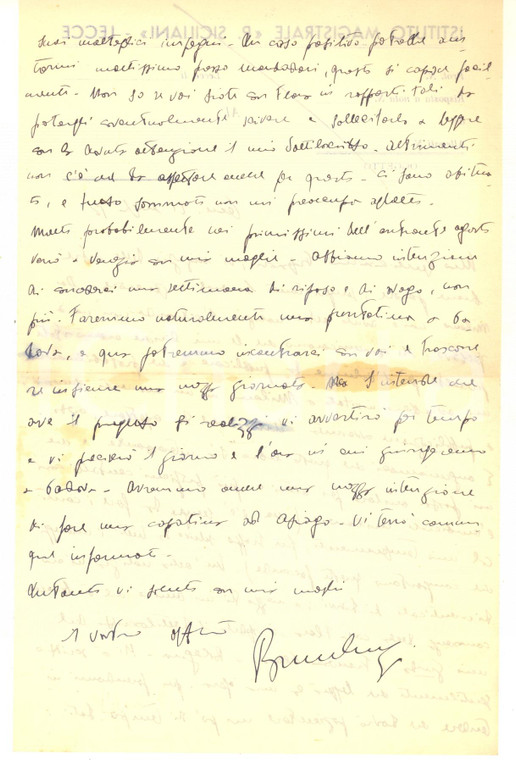 suoi molteplici impegni. In caso positivo potrebbe aiu
tarmi moltissimo presso Mondadori, questo si capisce facil
mente. Non so se voi siete con Flora in rapporti tali da
potergli eventualmente scrivere e sollecitarlo a leggere
con la dovuta attenzione il mio dattiloscritto. Altrimenti
non c'è che da aspettare anche per questo. Ci sono abitua
to, e tutto sommato non mi preoccupo affatto.
Molto probabilmente nei primissimi dell'entrante agosto
verrò a Venezia con mia moglie. Abbiamo intenzione
di concederci una settimana di riposo e di svago, non
più. Faremo naturalmente una puntatina a Pa
dova, e qua potremmo incontrarci con voi e trascorre
re insieme una mezza giornata. S'intende che
ove il progetto si realizzi vi avvertirò per tempo
e vi preciserò il giorno e l'ora in cui giungeremo
a Padova. Avremmo anche una mezza intenzione
di fare una capatina ad Asiago. Vi terrò comun
que informato.
Intanto vi saluto con mia moglie
il vostro aff.mo
ISTITUTO MAGISTRALE «P. SICILIANI» - LECCE